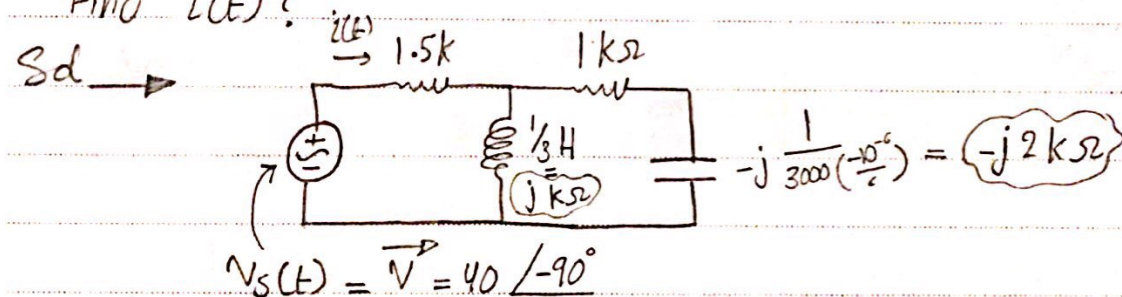 Find i(t)?
Sd →
i(t) →
1.5k
1kΩ
+
-
1/3 H
=
j kΩ
-j 1/3000(-10^-6/6) = -j2kΩ
Vs(t) = V⃗ = 40 ∠-90°